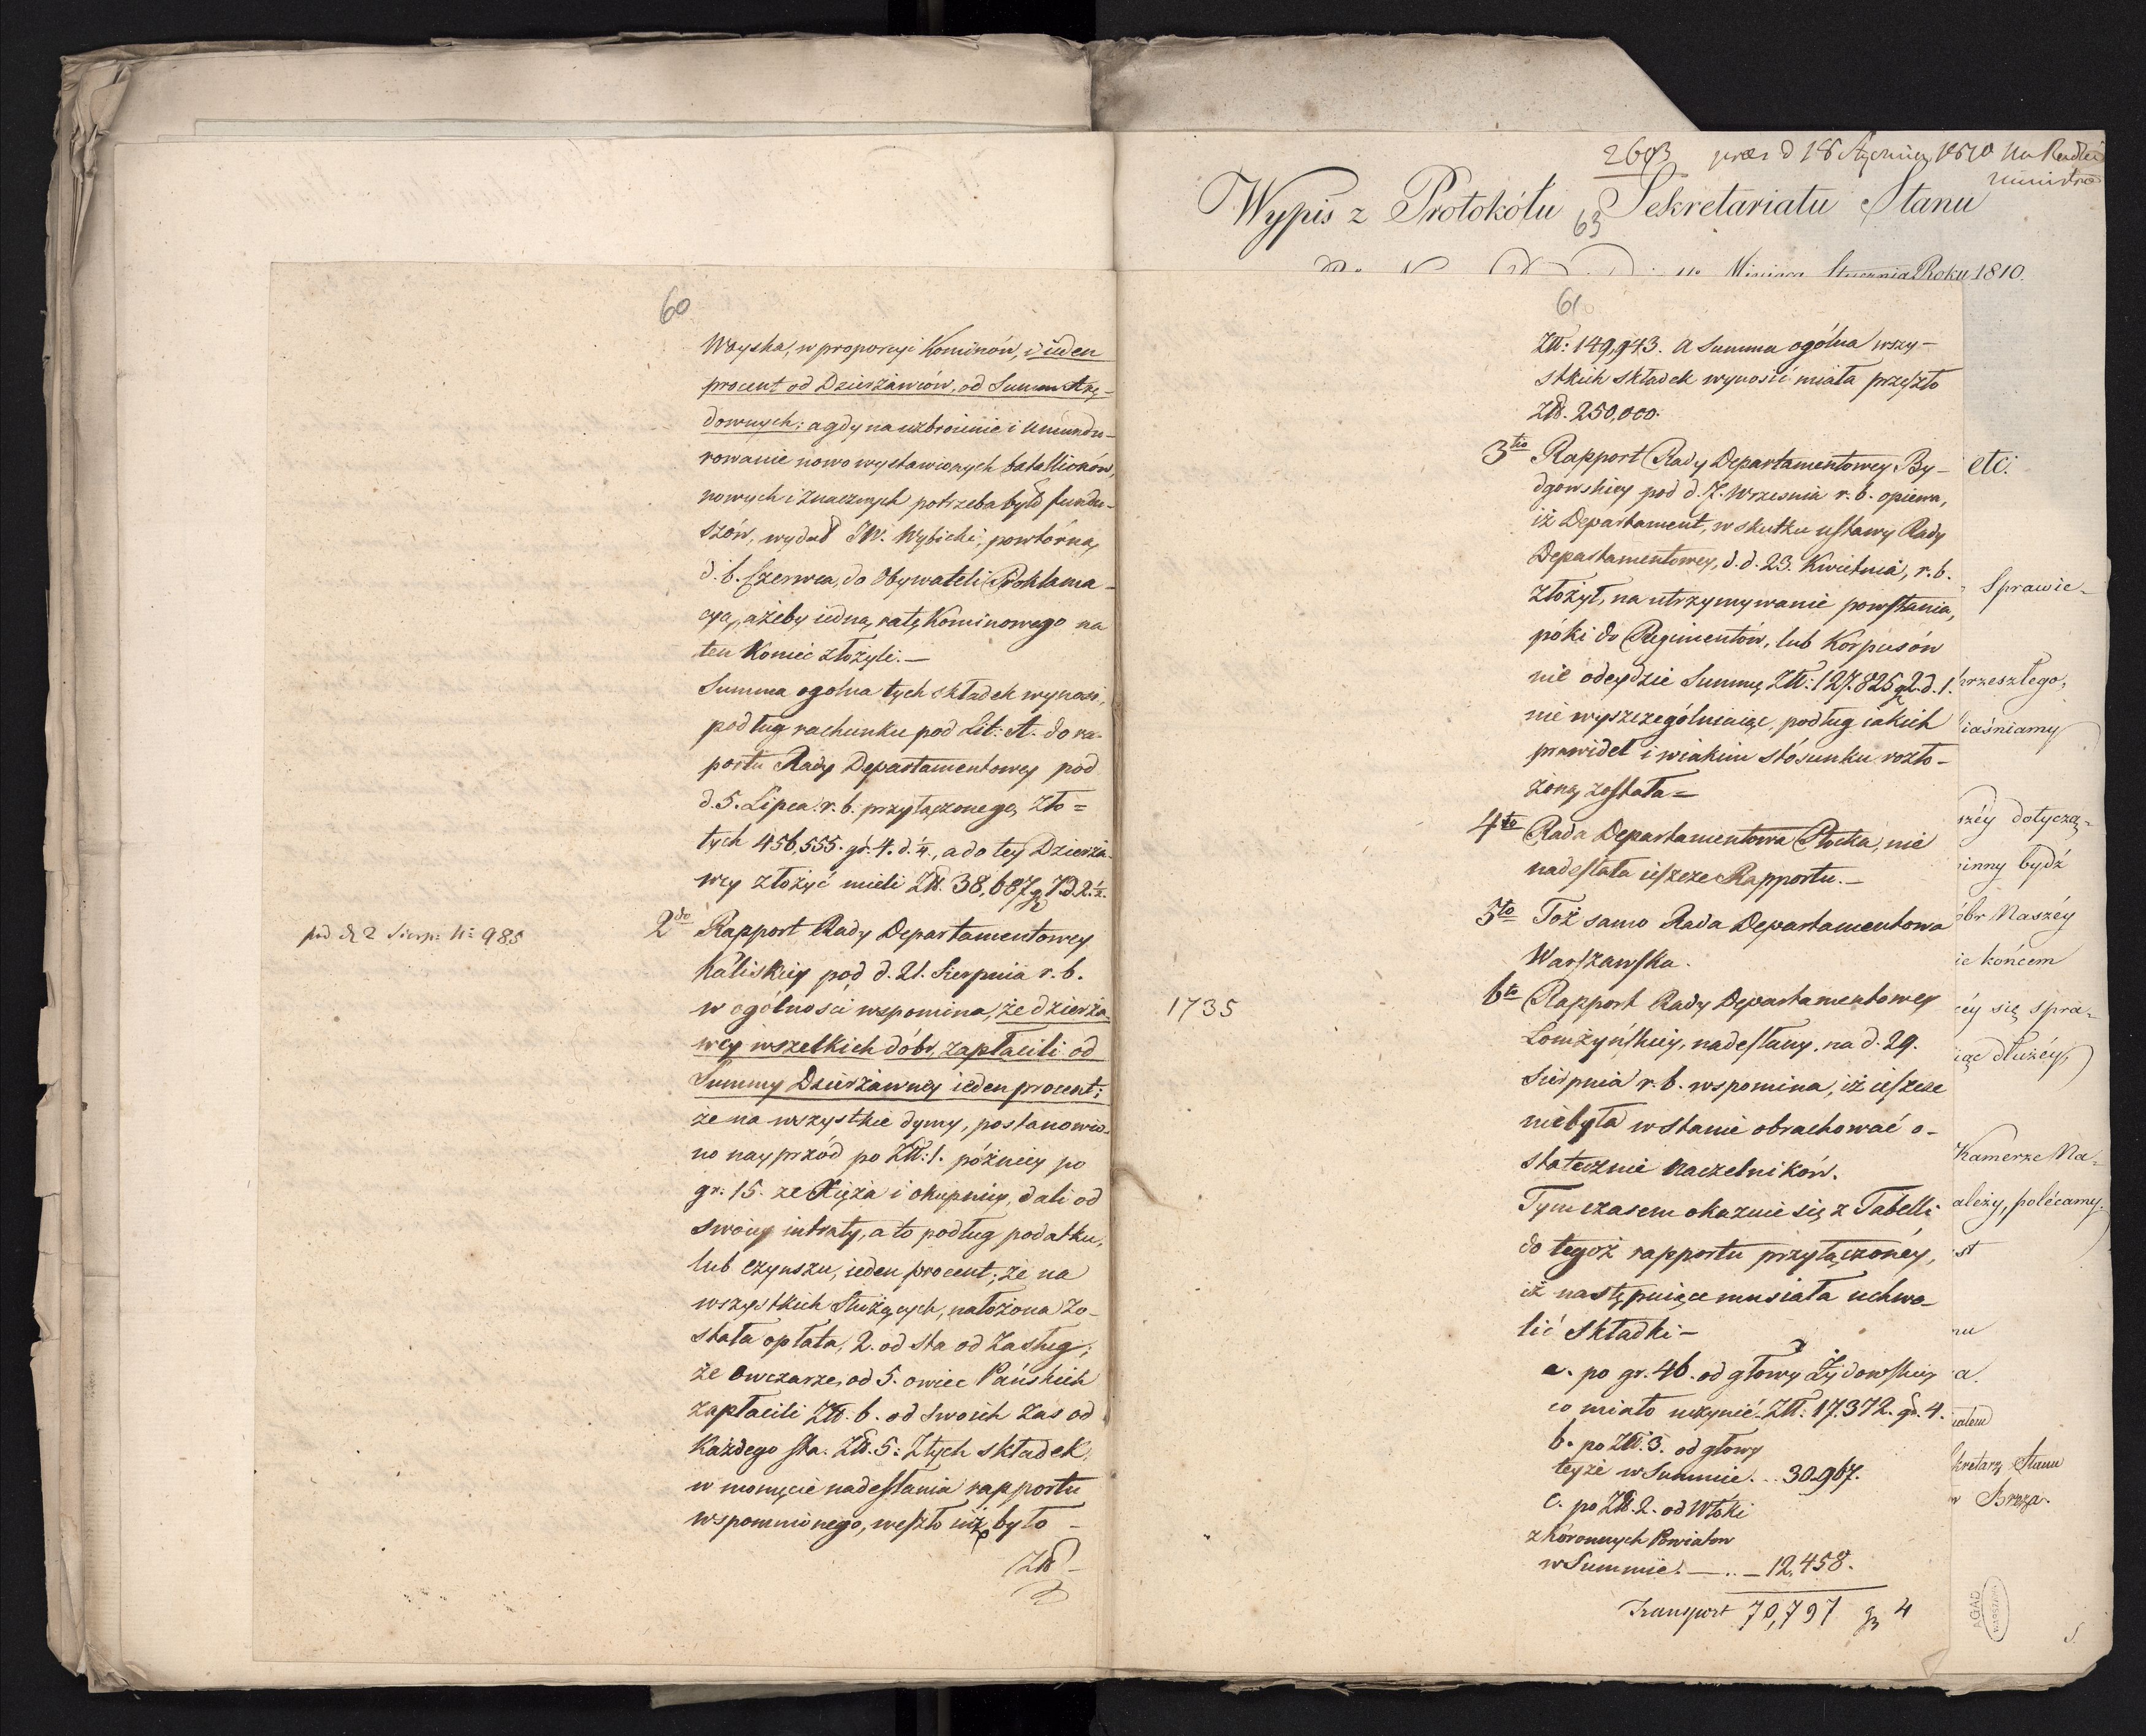 60
Woyska, w proporcyi Kominów, i ieden
procent od Dzierżawców, od Summ Arę-
downych; a gdy na uzbroienie i umundu-
rowanie nowo wystawionych batallionów,
nowych i znacznych potrzeba było fundu-
szów, wydał JW. Wybicki, powtórną,
d. 6. Czerwca, do Obywateli Proklama-
cyą, ażeby iedną ratę Kominowego na
ten Koniec złożyli.—
Summa ogolna tych składek wynosi,
podług rachunku pod Lit: A. do ra-
portu Rady Departamentowey pod
d. 5. Lipca r. b. przyłączonego, Zło=
tych 456,555. gr. 4. d. ¼., a do tey Dzierża-
wcy złożyć mieli Zł. 38,687 gr 7 d 2 ½.
pod d. 2 Sierp: N: 985
2do Rapport Rady Departamentowey
Kaliskiey pod d. 21. Sierpnia r. b.
w ogólnosci wspomina, że dzierża-
wcy wszelkich dóbr, zapłacili od
Summy Dzierżawney ieden procent;
że na wszystkie dymy, postanowio-
no nayprzód po Zł: 1. późniey po
gr: 15. ze Xięża i okupnicy, dali od
swoiey intraty, a to podług podatku,
lub czynszu, ieden procent; że na
wszystkich Służących, nałożona zo-
stała opłata, 2. od sta od Zasług;
że Owczarze, od 5. owiec Pańskich
zapłacili Zł. 6. od swoich zas od
każdego sta. Zł. 5: Z tych składek,
w momęcie nadesłania rapportu
wspomnionego, weszło iuż było —
Zł —
2603 prez d 18 Stycznia 1810
Wypis z Protokółu Sekretariatu Stanu
63
Miesiąca Stycznia Roku 1810.
61
Zł: 149,943. a Summa ogólna wszy-
stkich składek wynosić miała przeszło
Zł. 250,000.
3tio Rapport Rady Departamentowey By-
dgowskiey pod d. 7. Wrzesnia r. b. opiewa,
iż Departament, w skutku ustawy Rady
Departamentowey, d. d. 23. Kwietnia, r. b.
złożył, na utrzymywanie powstania,
póki do Regimentów, lub Korpusów
nie odeydzie Summę Zł: 127.825 g 2. d. 1.
nie wyszczególniaiąc, podług iakich
prawideł i w iakim stósunku rozło-
żoną została =
4to Rada Departamentowa Płocka, nie
nadesłała ieszcze Rapportu.—
5to Toż samo Rada Departamentowa
Warszawska.
1735
6to Rapport Rady Departamentowey
Łomżyńskiey, nadesłany, na d. 29.
Sierpnia r. b. wspomina, iż ieszcze
niebyła w stanie obrachować o-
statecznie Naczelników.
Tymczasem okazuie się z Tabelli
do tegoż rapportu przyłączonéy,
iż następuiące musiała uchwa-
lić składki —
a. po gr. 46. od głowy Żydowskiey
co miało uczynić Zł: 17.372. gr. 4.
b. po Zł. 3. od głowy
teyże w Summie. . . 30.967.
c. po Zł. 2. od Włóki
z koronnych Powiatow
w Summie. — .. — 12,458.
Transport 70,797 gr 4
etc:
Sprawie-
przeszłego,
iaśniamy
széy dotyczą-
inny bydź
óbr Naszéy
ie końcem
éy się spra-
iąc dłużéy,
Kamerze Na-
ależy, polécamy.
st
nu
a.
kretarz Stanu
w Breza.
AGAD
WARSZAWA